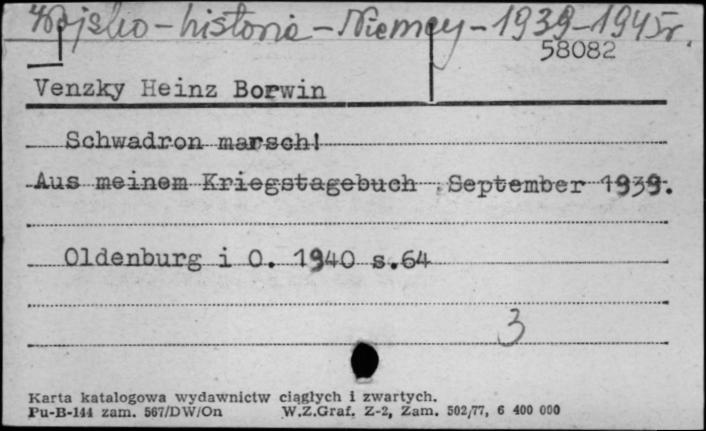 Wojsko - historia - Niemcy - 1939-1945r.
58082
Venzky Heinz Borwin
Schwadron marsch!
Aus meinem Kriegstagebuch September 1939.
Oldenburg i O. 1940 s.64
3
Karta katalogowa wydawnictw ciągłych i zwartych.
Pu-B-144 zam. 567/DW/On W.Z.Graf. Z-2, Zam. 502/77, 6 400 000